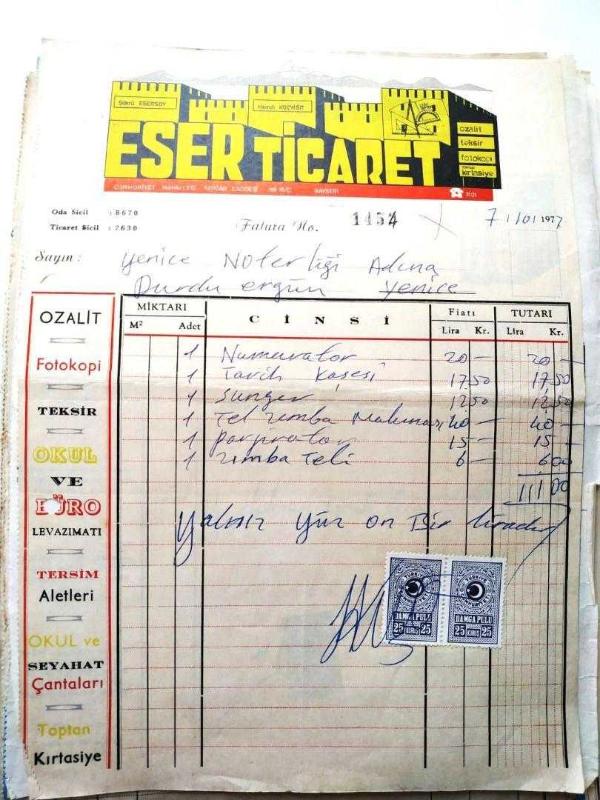 Şükrü ESERSOY
ESER TİCARET
ozalit
teksir
fotokopi
kırtasiye
CUMHURİYET MAHALLESİ SERDAR CADDESİ KAYSERİ
3101
Oda Sicil : 8670
Ticaret Sicil : 2630
Fatura No. 1454
7/10/1977
Sayın: Yenice Noterliği Adına
Durdu ergün Yenice
MİKTARI CİNSİ Fiatı TUTARI
M² Adet Lira Kr. Lira Kr.
1 Numurator 20 — 20 —
1 Tarih Kaşesi 17 50 17 50
1 Sünger 12 50 12 50
1 Tel zımba Makinası 40 — 40 —
1 Parprator 15 — 15 —
1 zımba Teli 6 — 6 00
111 00
Yalnız Yüz on Bir liradır
OZALİT
Fotokopi
TEKSİR
OKUL
VE
BÜRO
LEVAZIMATI
TERSİM
Aletleri
OKUL ve
SEYAHAT
Çantaları
Toptan
Kırtasiye
DAMGA PULU DAMGA PULU
25 KURUŞ 25 25 KURUŞ 25